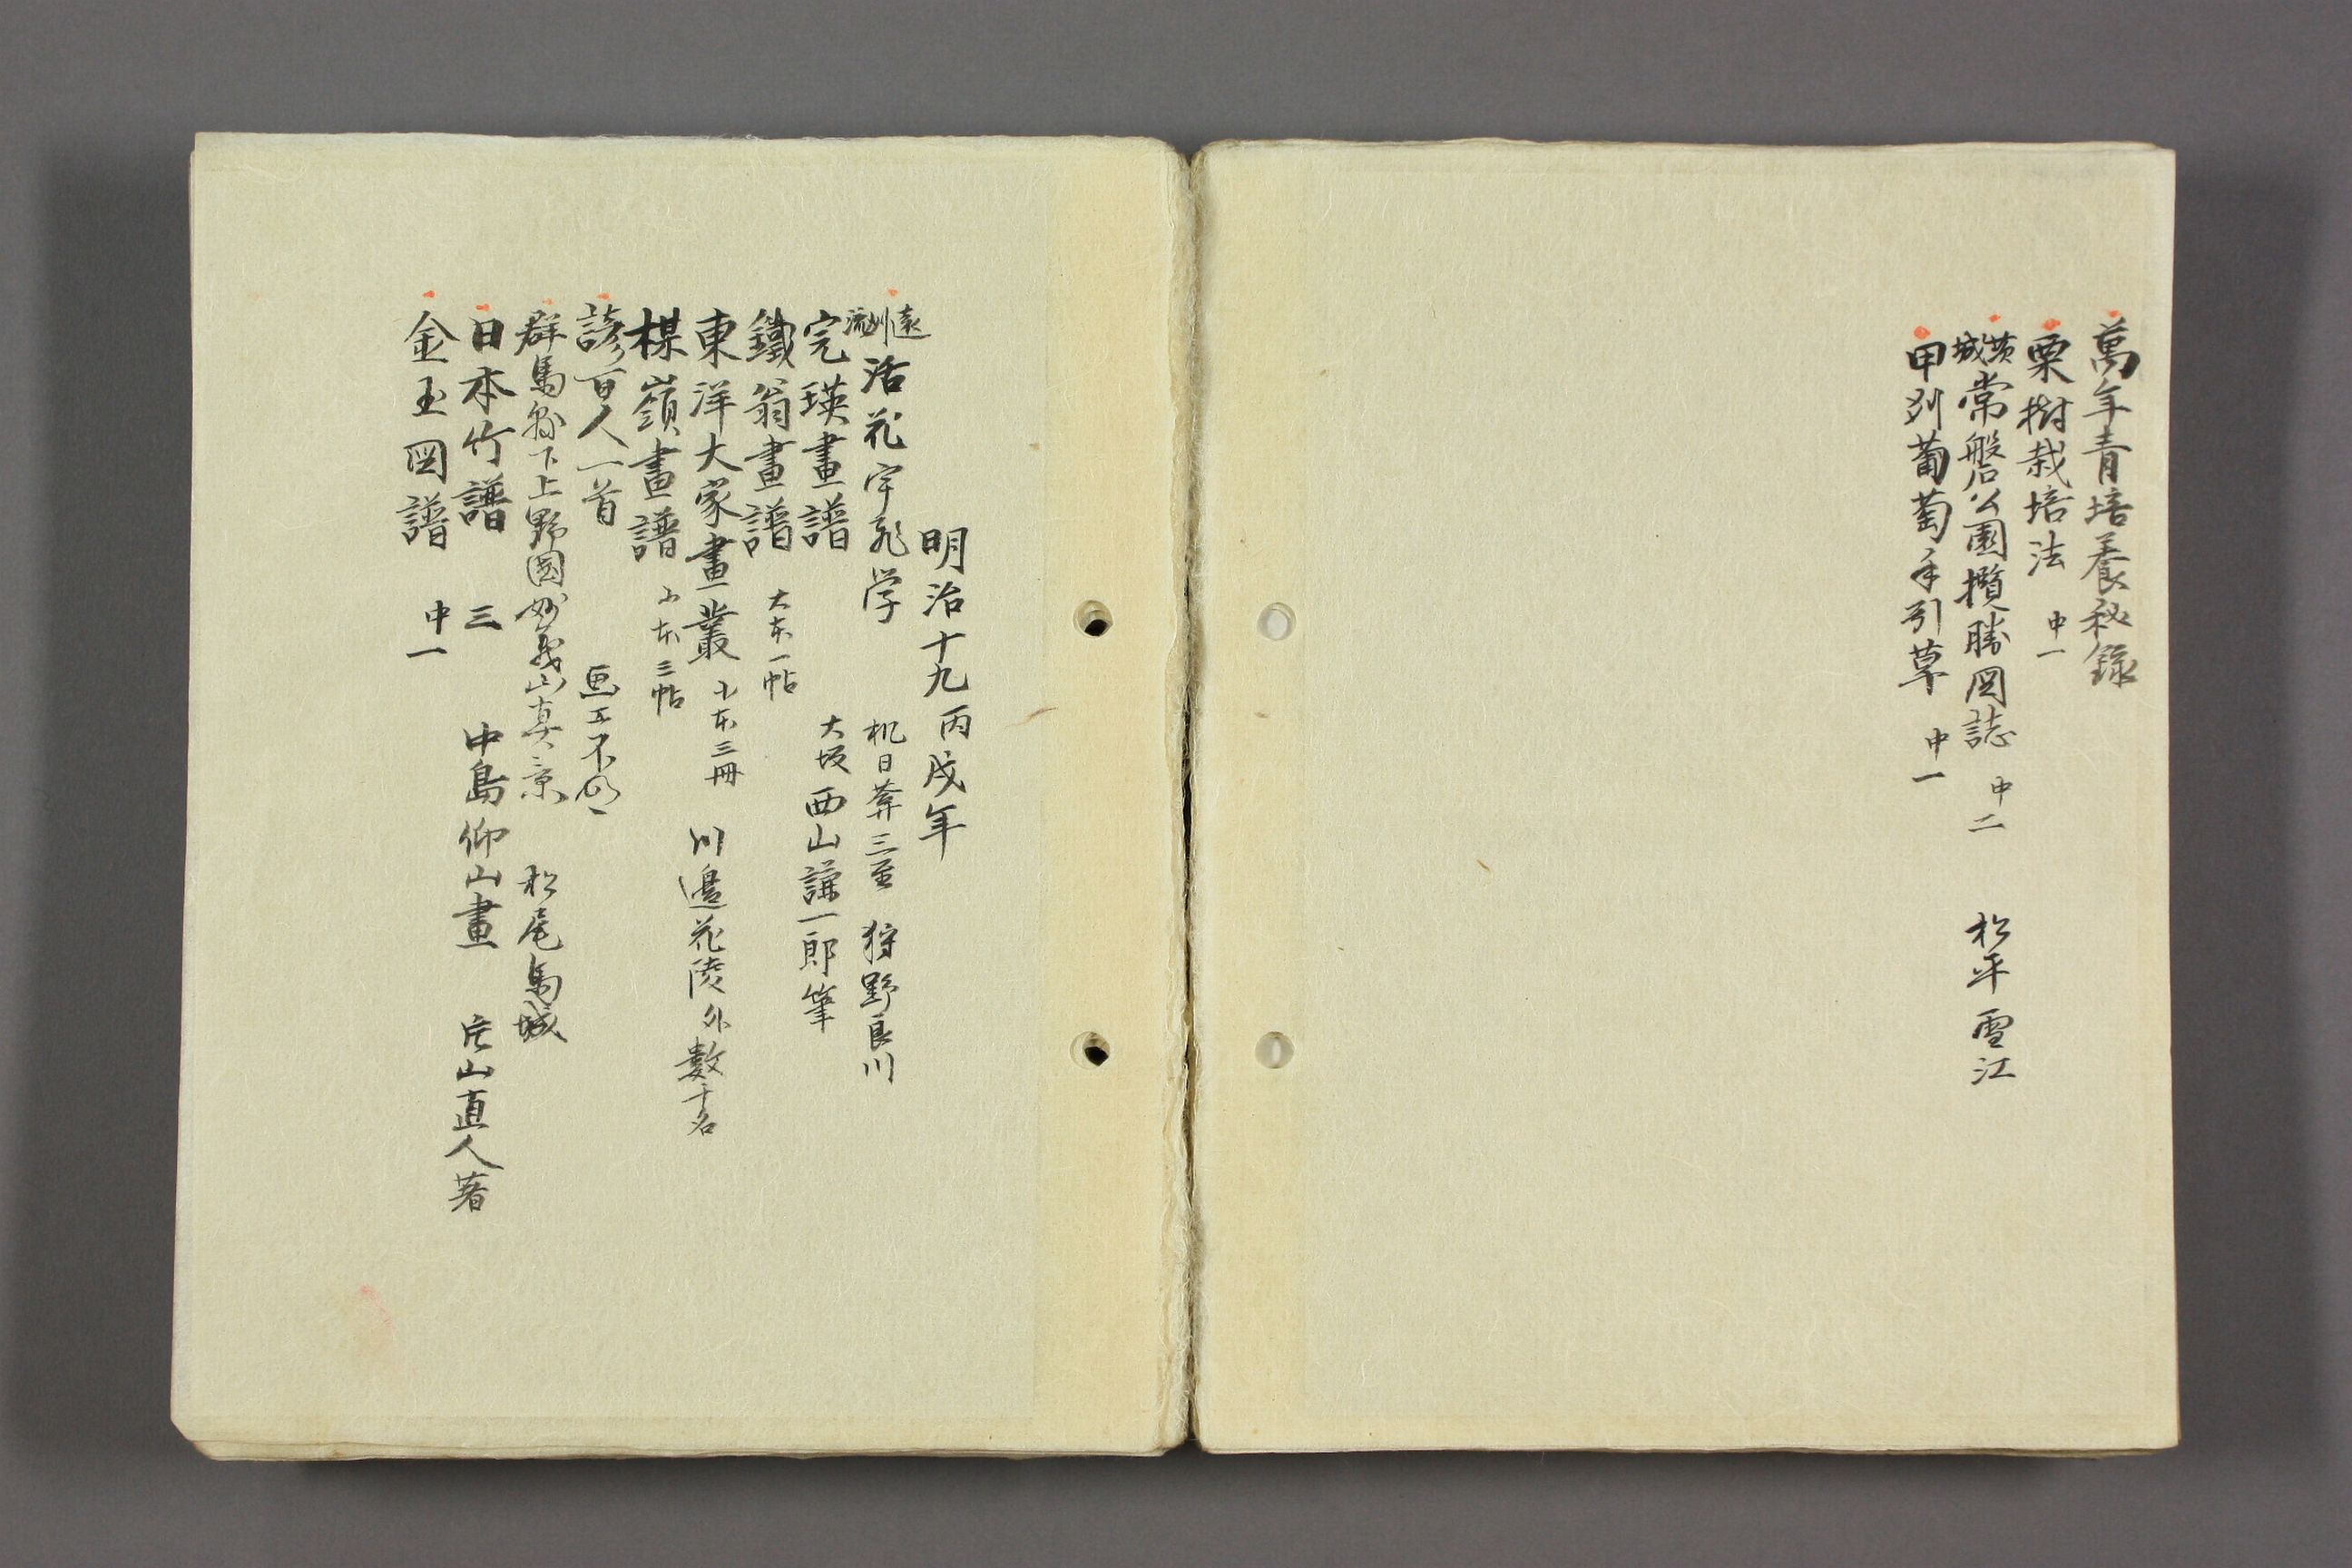 萬年青培養秘録
栗樹栽培法 中一
茨城 常磐公園攬勝図誌 中二 松平雪江
甲州葡萄手引草 中一
明治十九丙戌年
遠州流 活花 学 狩野良川
完瑛畫譜 大坂 西山謙一郎筆
鐵翁畫譜 大本一帖
東洋大家畫叢 小本三冊 川邉花陵外數十名
楳嶺畫譜 小本三帖
諺百人一首 画工不明
群馬縣下上野國妙義山真景 松尾馬城
日本竹譜 三 中島仰山畫 片山直人著
金玉図譜 中一